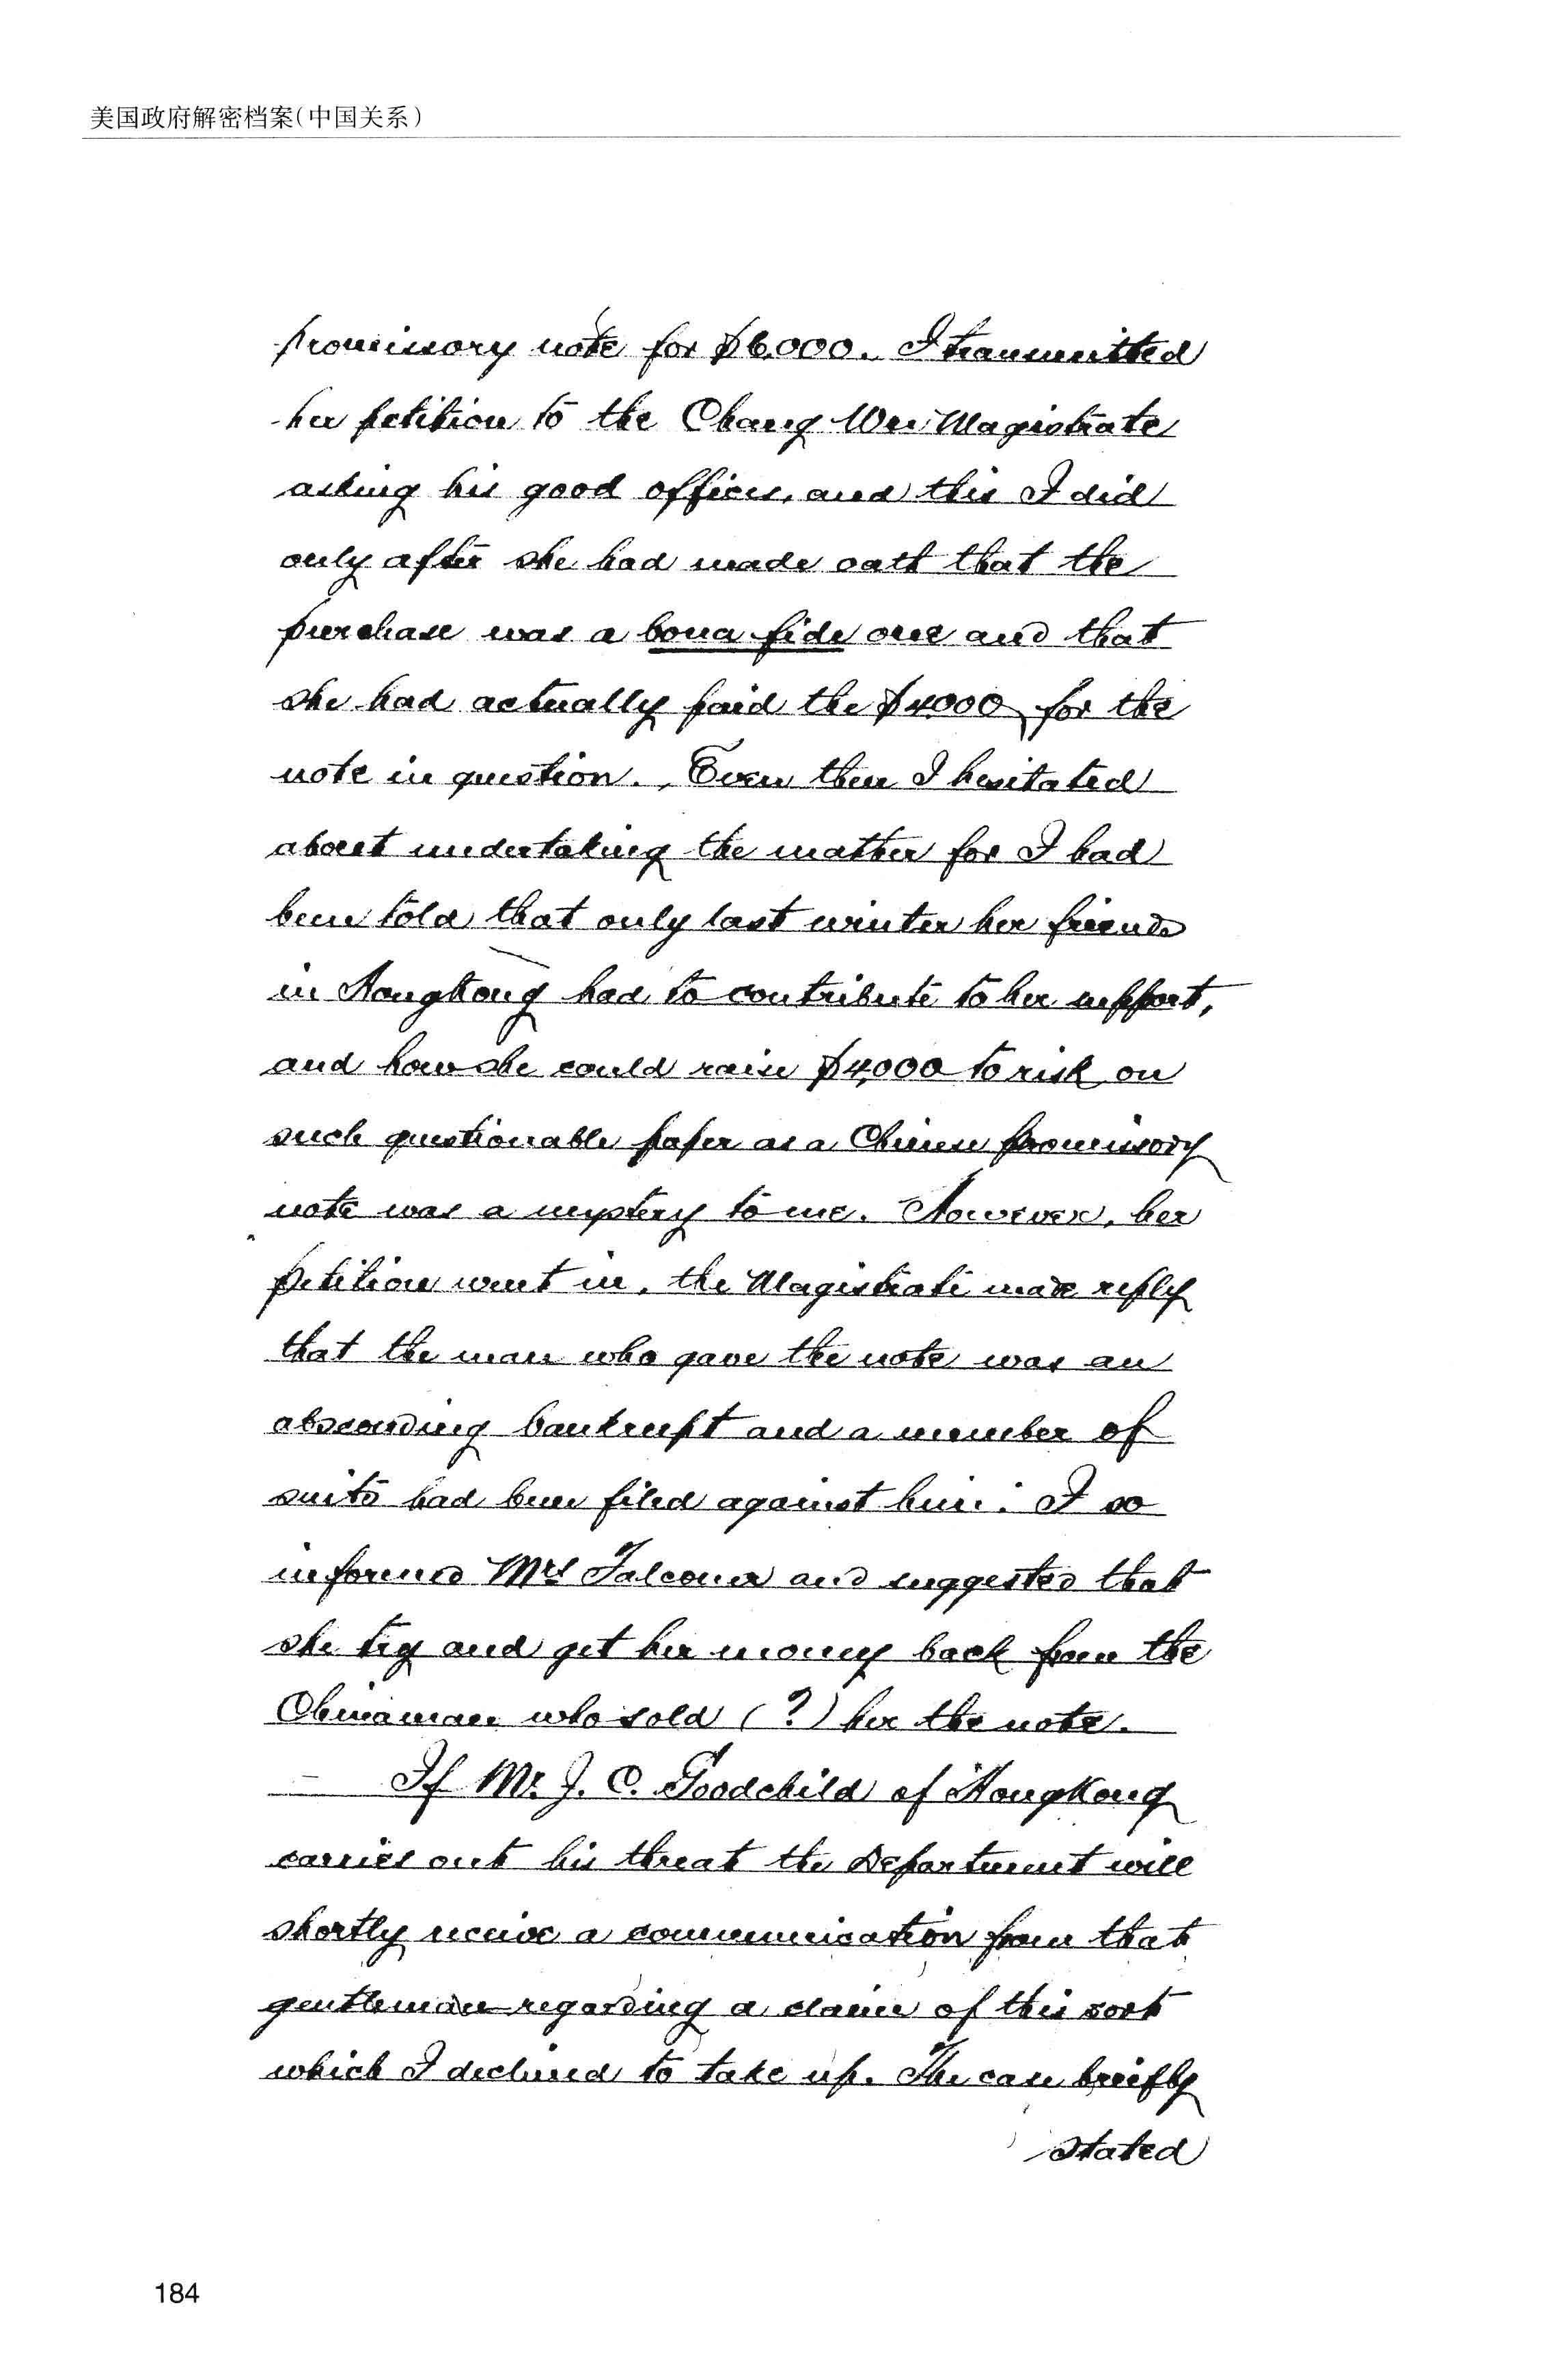 美国政府解密档案(中国关系)
promissory note for $6,000. I transmitted
her petition to the Chang Wei Magistrate
asking his good offices, and this I did
only after she had made oath that the
purchase was a bona fide one and that
she had actually paid the $4,000 for the
note in question. Even then I hesitated
about undertaking the matter for I had
been told that only last winter her friends
in HongKong had to contribute to her support,
and how she could raise $4,000 to risk on
such questionable paper as a Chinese promissory
note was a mystery to me. However, her
petition went in, the Magistrate made reply
that the man who gave the note was an
absconding bankrupt and a number of
suits had been filed against him. I so
informed Mrs Falconer and suggested that
she try and get her money back from the
Chinaman who sold (?) her the note.
If Mr. J. C. Goodchild of HongKong
carries out his threat the Department will
shortly receive a communication from that
gentleman regarding a claim of this sort
which I declined to take up. The case briefly
stated
184